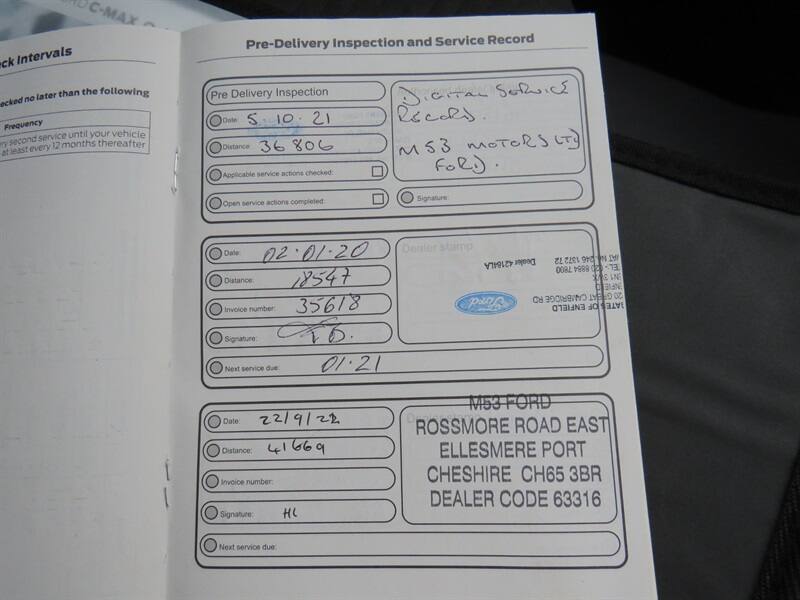 ORD C-MAX
ck Intervals
ecked no later than the following
Frequency
ry second service until your vehicle
at least every 12 months thereafter
Pre-Delivery Inspection and Service Record
Pre Delivery Inspection
Date: 5.10.21
Distance: 36806
Applicable service actions checked:
Open service actions completed:
DIGITAL SERVICE
RECORD.
M53 MOTORS LTD
FORD.
Signature:
Date: 02.01.20
Distance: 18547
Invoice number: 35618
Signature:
Next service due: 01.21
Dealer stamp
Dealer 42184LA
Ford
GATES OF ENFIELD
20 GREAT CAMBRIDGE RD
ENFIELD
EN1 3
TEL - 020 8884 7800
VAT No 246 1372 72
Date: 22/9/22
Distance: 41669
Invoice number:
Signature: HL
Next service due:
M53 FORD
ROSSMORE ROAD EAST
ELLESMERE PORT
CHESHIRE CH65 3BR
DEALER CODE 63316